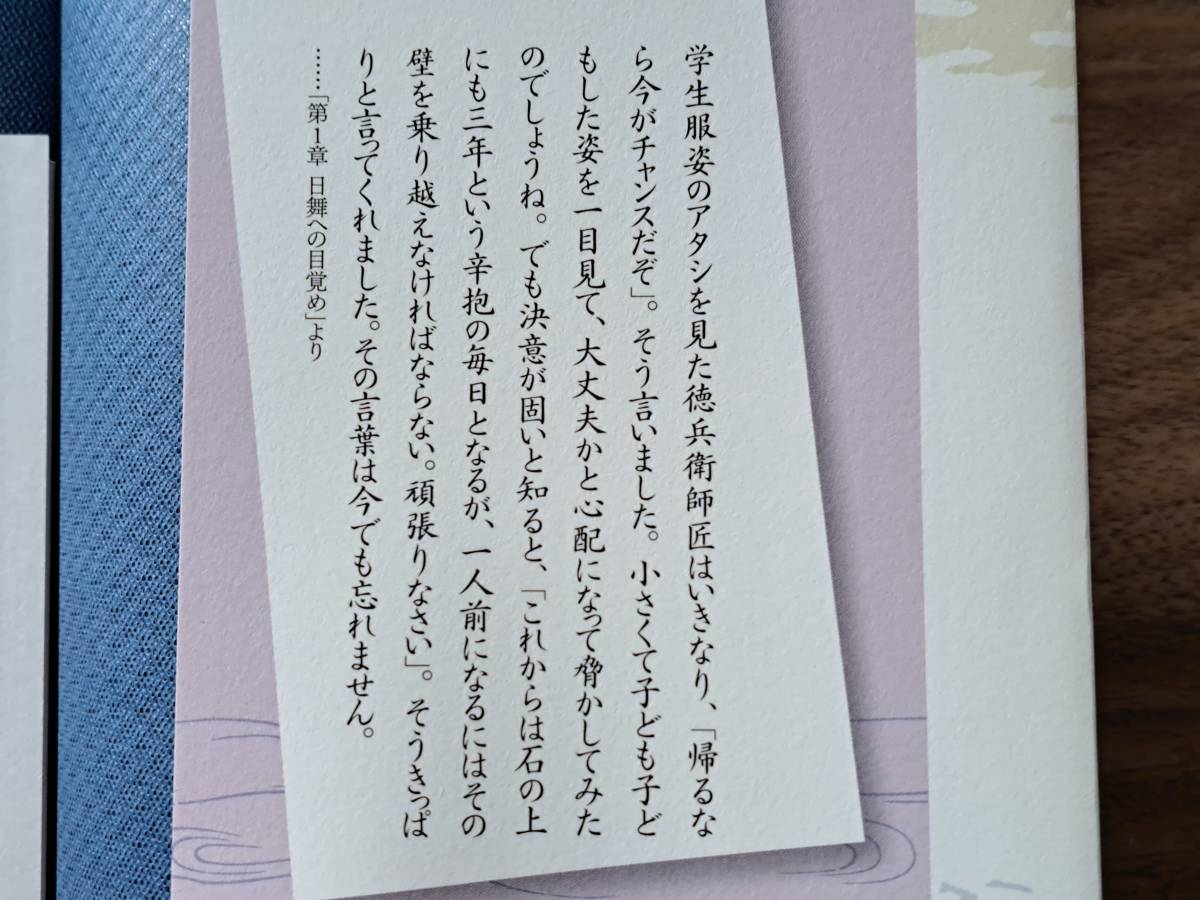 学生服姿のアタシを見た徳兵衛師匠はいきなり、「帰るな
ら今がチャンスだぞ」。そう言いました。小さくて子ども子ど
もした姿を一目見て、大丈夫かと心配になって脅かしてみた
のでしょうね。でも決意が固いと知ると、「これからは石の上
にも三年という辛抱の毎日となるが、一人前になるにはその
壁を乗り越えなければならない。頑張りなさい」。そうきっぱ
りと言ってくれました。その言葉は今でも忘れません。
……「第1章 日舞への目覚め」より